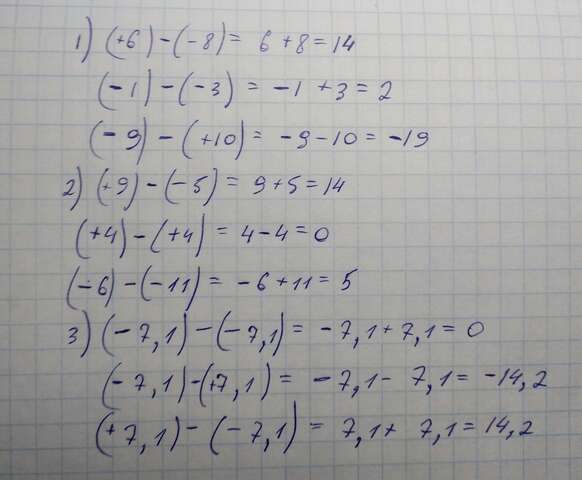 1) (+6) - (-8) = 6 + 8 = 14
(-1) - (-3) = -1 + 3 = 2
(-9) - (+10) = -9 - 10 = -19
2) (+9) - (-5) = 9 + 5 = 14
(+4) - (+4) = 4 - 4 = 0
(-6) - (-11) = -6 + 11 = 5
3) (-7,1) - (-7,1) = -7,1 + 7,1 = 0
(-7,1) - (+7,1) = -7,1 - 7,1 = -14,2
(+7,1) - (-7,1) = 7,1 + 7,1 = 14,2